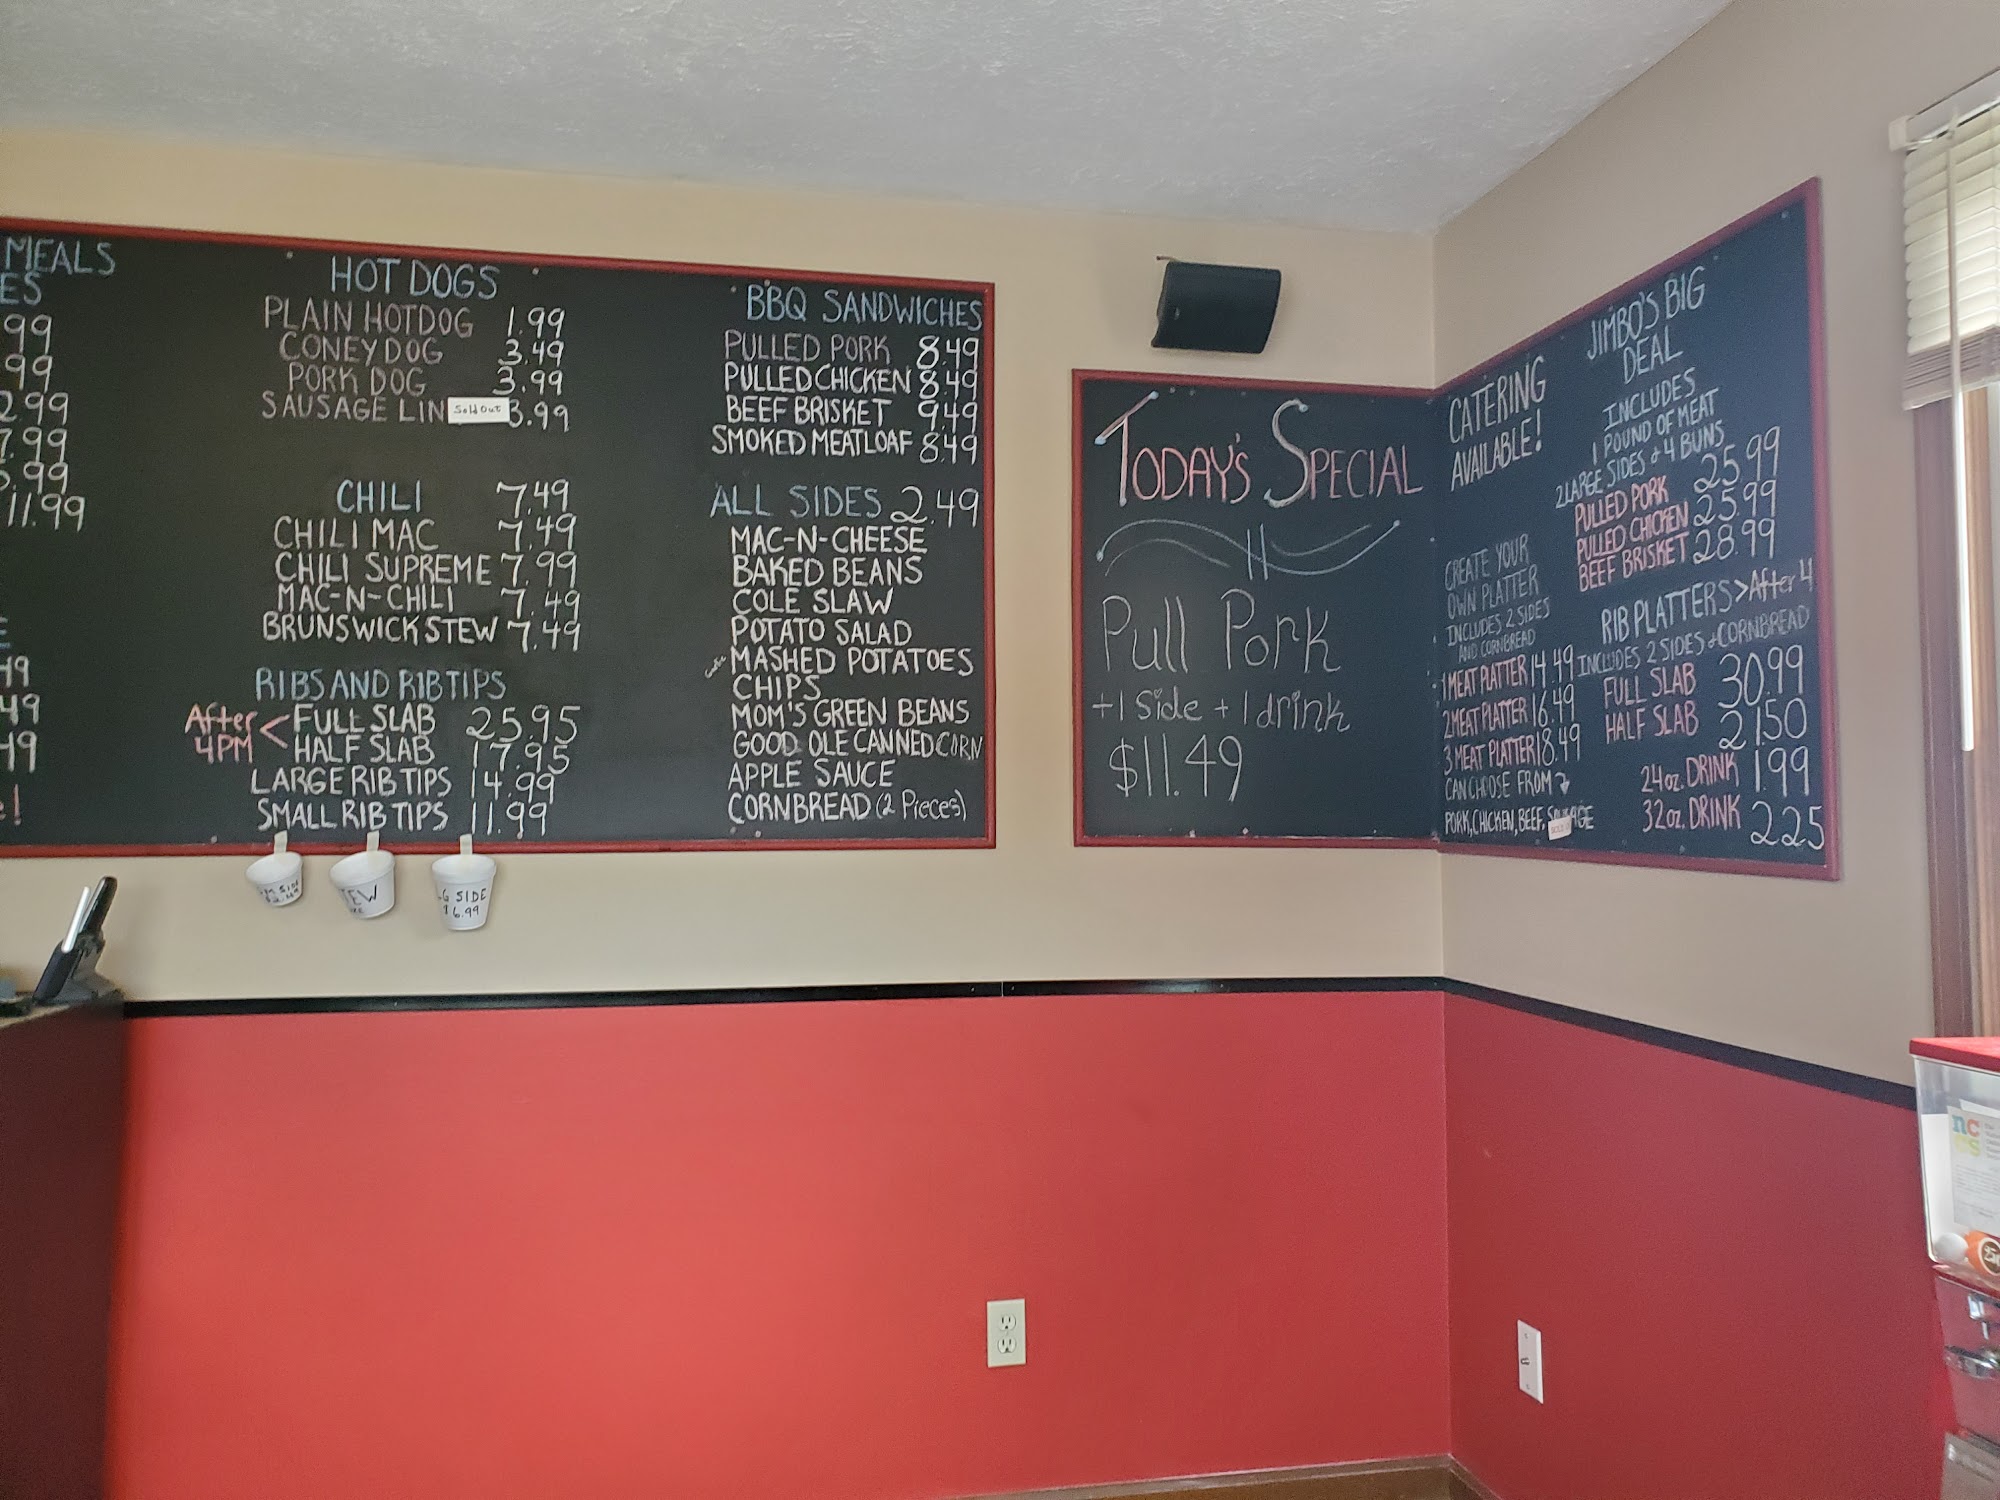 MEALS
ES
99
99
2.99
7.99
5.99
11.99
49
49
49
e!
HOT DOGS
PLAIN HOTDOG 1.99
CONEY DOG 3.49
PORK DOG 3.99
SAUSAGE LIN Sold Out 3.99
CHILI 7.49
CHILI MAC 7.49
CHILI SUPREME 7.99
MAC-N-CHILI 7.49
BRUNSWICK STEW 7.49
RIBS AND RIB TIPS
After 4PM < FULL SLAB 25.95
HALF SLAB 17.95
LARGE RIB TIPS 14.99
SMALL RIB TIPS 11.99
SIDE
TEW
LG SIDE
$6.99
BBQ SANDWICHES
PULLED PORK 8.49
PULLED CHICKEN 8.49
BEEF BRISKET 9.49
SMOKED MEATLOAF 8.49
ALL SIDES 2.49
MAC-N-CHEESE
BAKED BEANS
COLE SLAW
POTATO SALAD
MASHED POTATOES
CHIPS
MOM'S GREEN BEANS
GOOD OLE CANNED CORN
APPLE SAUCE
CORNBREAD (2 Pieces)
TODAY'S SPECIAL
Pull Pork
+ 1 side + 1 drink
$11.49
CATERING
AVAILABLE!
CREATE YOUR
OWN PLATTER
INCLUDES 2 SIDES
AND CORNBREAD
1 MEAT PLATTER 14.49
2 MEAT PLATTER 16.49
3 MEAT PLATTER 18.49
CAN CHOOSE FROM
PORK, CHICKEN, BEEF, SAUSAGE
JIMBO'S BIG
DEAL
INCLUDES
1 POUND OF MEAT
2 LARGE SIDES & 4 BUNS
PULLED PORK 25.99
PULLED CHICKEN 25.99
BEEF BRISKET 28.99
RIB PLATTERS > After 4
INCLUDES 2 SIDES & CORNBREAD
FULL SLAB 30.99
HALF SLAB 21.50
24 oz. DRINK 1.99
32 oz. DRINK 2.25
nc
25¢